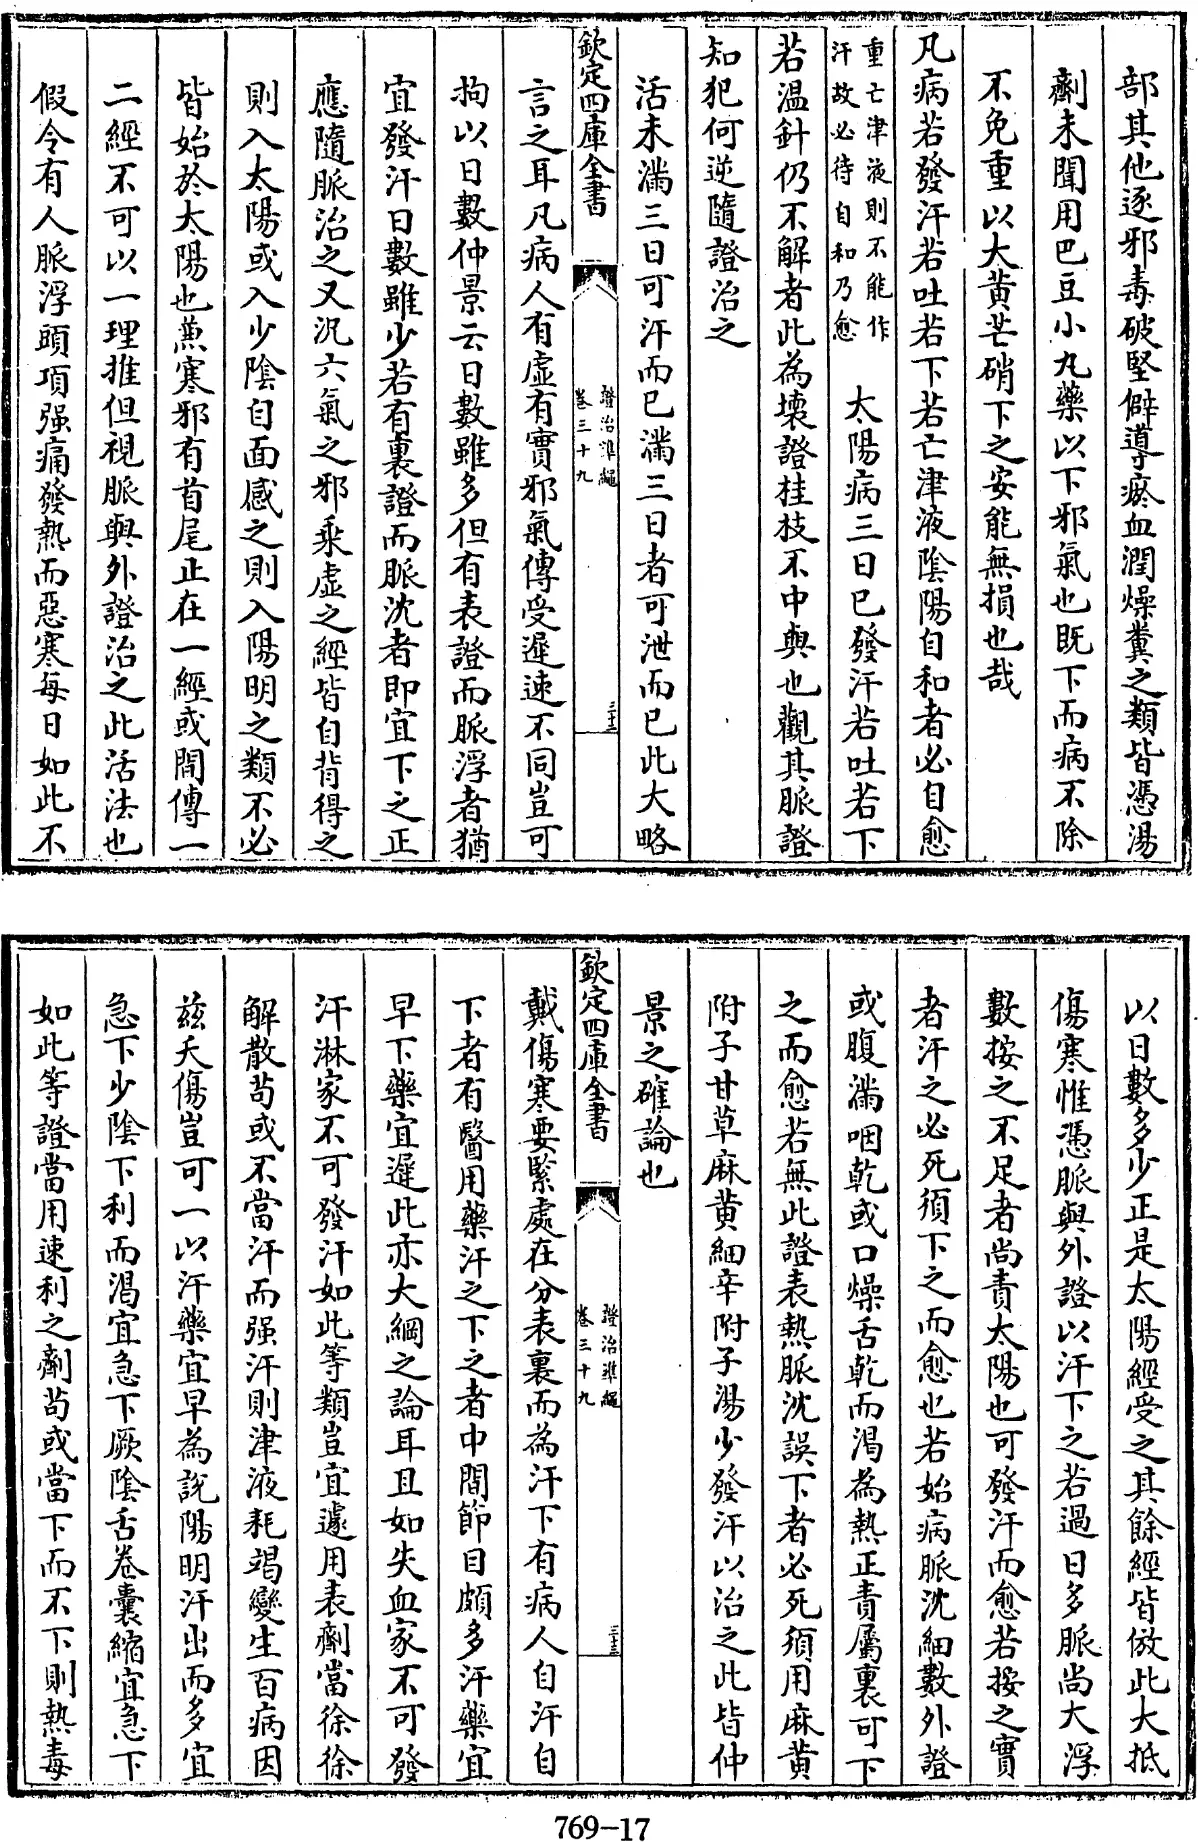 部其他逐邪毒破堅僻導瘀血潤燥糞之類皆憑湯
劑未聞用巴豆小丸藥以下邪氣也既下而病不除
不免重以大黄芒硝下之安能無損也哉
凡病若發汗若吐若下若亡津液陰陽自和者必自愈
重亡津液則不能作
汗故必待自和乃愈
太陽病三日已發汗若吐若下
若温針仍不解者此為壊證桂枝不中與也觀其脈證
知犯何逆隨證治之
活未滿三日可汗而已滿三日者可泄而已此大略
欽定四庫全書
證治準繩
卷三十九
三十三
言之耳凡病人有虚有實邪氣傳受遲速不同豈可
拘以日數仲景云日數雖多但有表證而脈浮者猶
宜發汗日數雖少若有裏證而脈沈者即宜下之正
應隨脈治之又況六氣之邪乘虚之經皆自背得之
則入太陽或入少陰自面感之則入陽明之類不必
皆始於太陽也兼寒邪有首尾止在一經或間傳一
二經不可以一理推但視脈與外證治之此活法也
假令有人脈浮頭項强痛發熱而惡寒每日如此不
以日數多少正是太陽經受之其餘經皆倣此大抵
傷寒惟憑脈與外證以汗下之若過日多脈尚大浮
數按之不足者尚責太陽也可發汗而愈若按之實
者汗之必死須下之而愈也若始病脈沈細數外證
或腹滿咽乾或口燥舌乾而渴為熱正責屬裏可下
之而愈若無此證表熱脈沈誤下者必死須用麻黄
附子甘草麻黄細辛附子湯少發汗以治之此皆仲
景之確論也
欽定四庫全書
證治準繩
卷三十九
三十三
戴傷寒要緊處在分表裏而為汗下有病人自汗自
下者有醫用藥汗之下之者中間節目頗多汗藥宜
早下藥宜遲此亦大綱之論耳且如失血家不可發
汗淋家不可發汗如此等類豈宜遽用表劑當徐徐
解散苟或不當汗而强汗則津液耗竭變生百病因
兹夭傷豈可一以汗藥宜早為説陽明汗出而多宜
急下少陰下利而渴宜急下厥陰舌卷囊縮宜急下
如此等證當用速利之劑苟或當下而不下則熱毒
769-17